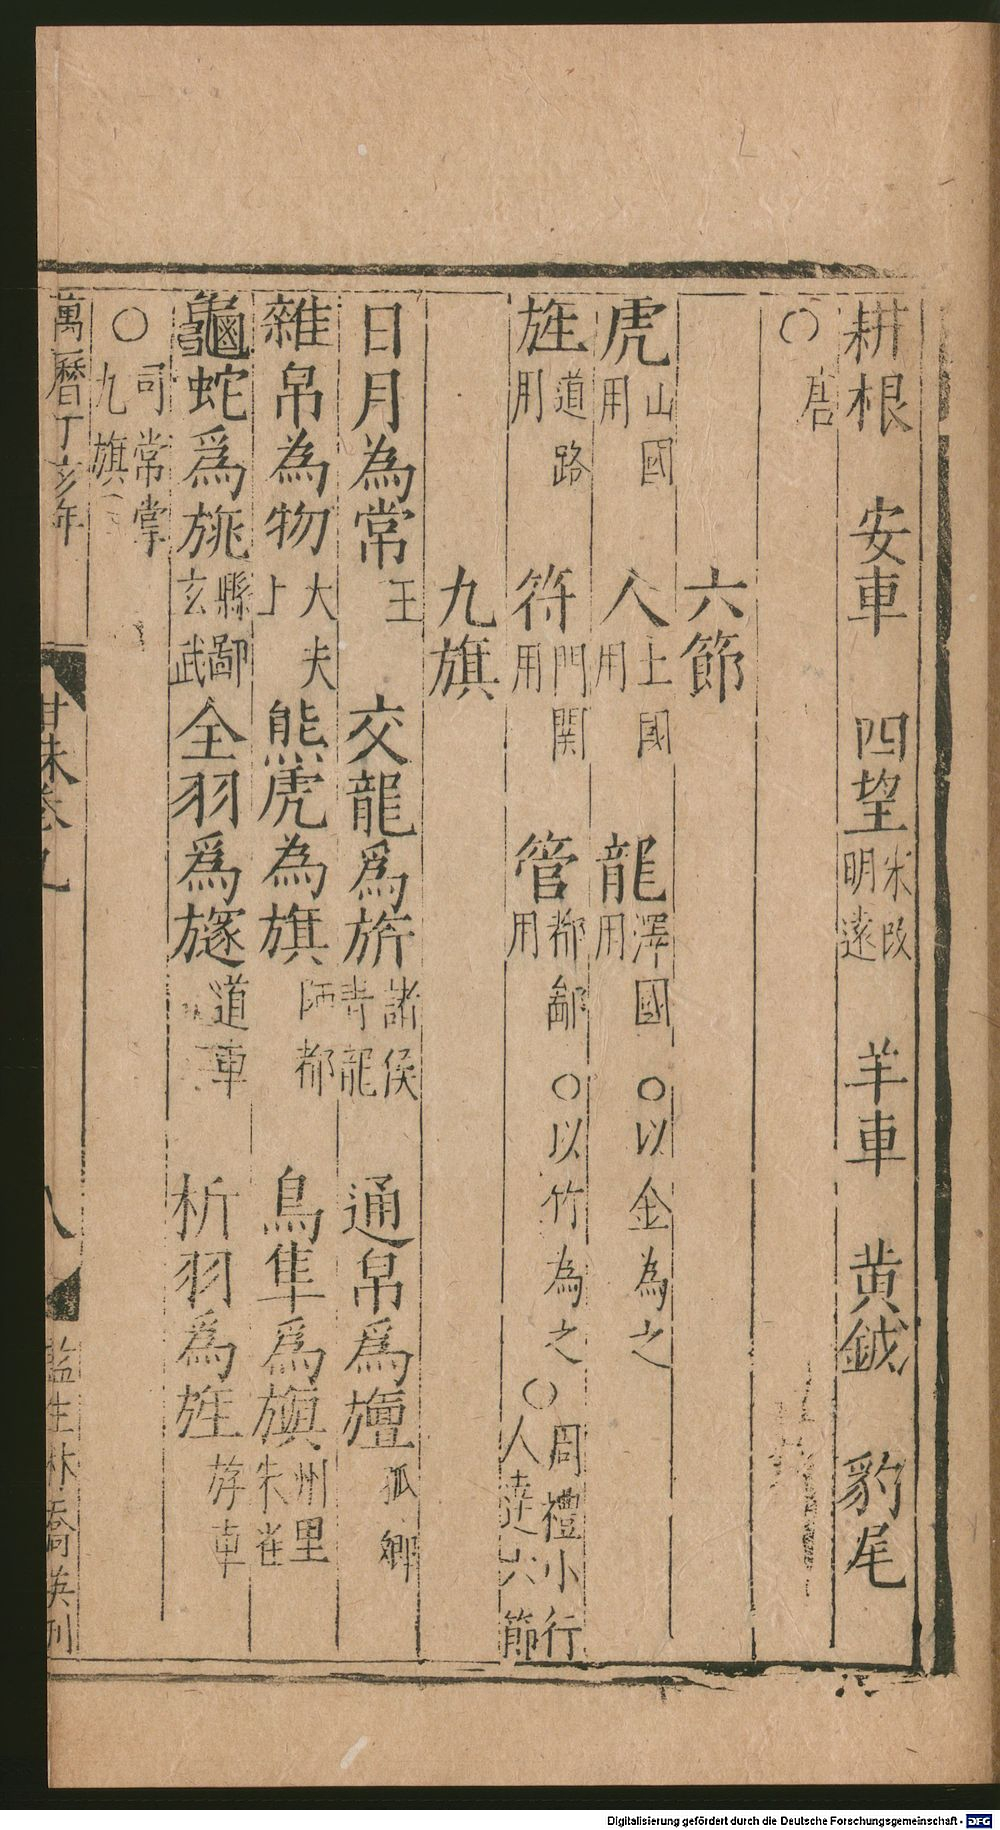 耕根　安車　四望宋改明遠　羊車　黄鉞　豹尾
○唐
六節
虎山國用　人土國用　龍澤國用○以金為之
旌道路用　符門關用　管都鄙用○以竹為之○周禮小行人達六節
九旗
日月為常王　交龍爲旂諸侯青龍　通帛爲旜孤卿
雜帛為物大夫士　熊虎為旗師都　鳥隼爲旟州里朱雀
龜蛇爲旐縣鄙玄武　全羽爲旞道車　析羽爲旌斿車
○司常掌九旗
萬曆丁亥年
甘珠卷九
八
監生林喬英刊
Digitalisierung gefördert durch die Deutsche Forschungsgemeinschaft - DFG